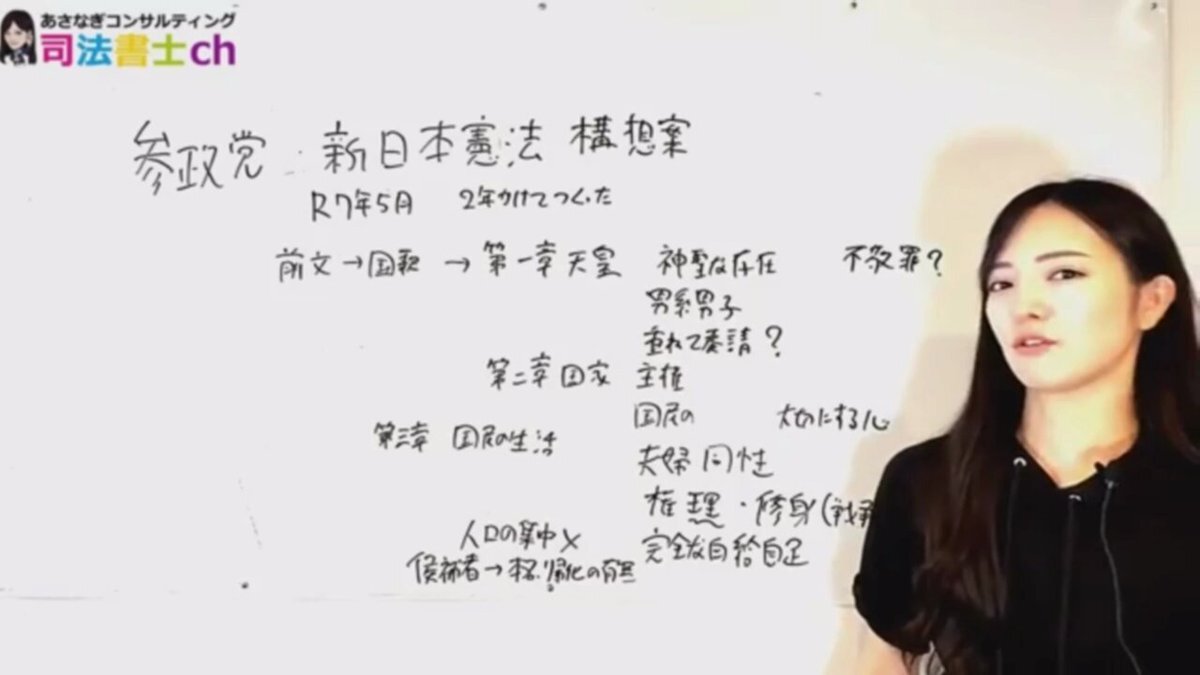 あさなぎコンサルティング
司法書士ch
参政党 新日本憲法 構想案
R7年5月 2年かけてつくった
前文→国歌→第一章天皇 神聖な存在 不敬罪?
男系男子
重ねて要請?
第二章国家 主権
国民の 大切にする心
第三章 国民の生活
夫婦同性
権理・修身(戦前
人口の集中×
完全な自給自足
候補者→本名、帰化の有無